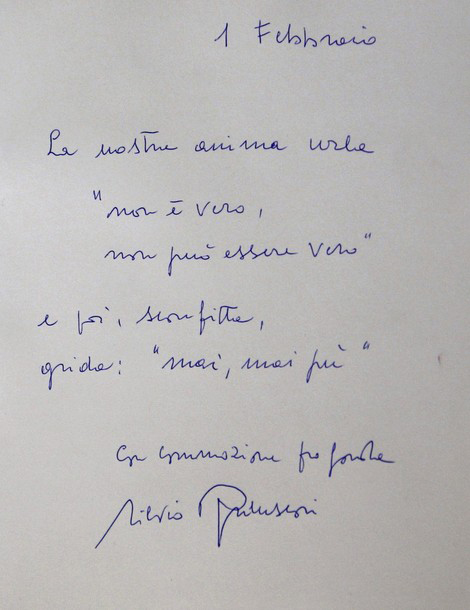 1 Febbraio
La nostra anima urla
"non è vero,
non può essere vero"
e poi, sconfitta,
grida: "mai, mai più"
Con commozione profonda
Silvio Berlusconi